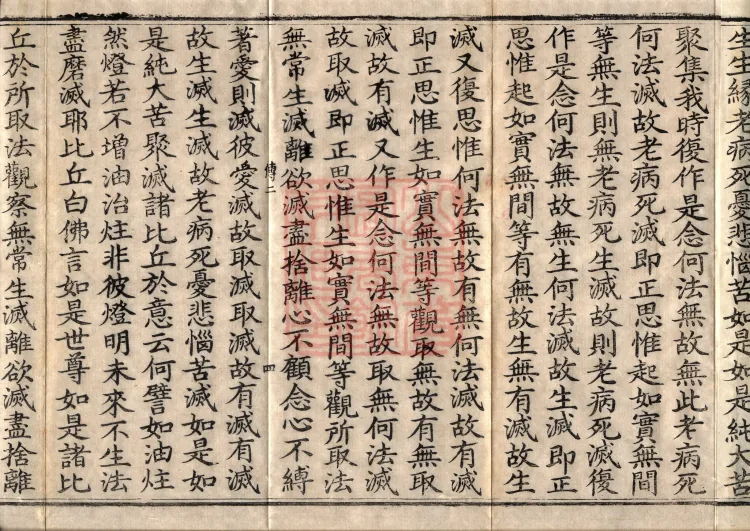 生生緣老病死憂悲惱苦如是如是純大苦
聚集我時復作是念何法無故無此老病死
何法滅故老病死滅即正思惟起如實無間
等無生則無老病死生滅故則老病死滅復
作是念何法無故無生何法滅故生滅即正
思惟起如實無間等有無故生無有滅故生
滅又復思惟何法無故有無何法滅故有滅
即正思惟生如實無間等觀取無故有無取
滅故有滅又作是念何法無故取無何法滅
故取滅即正思惟生如實無間等觀所取法
無常生滅離欲滅盡捨離心不顧念心不縛
傳二
四
著愛則滅彼愛滅故取滅取滅故有滅有滅
故生滅生滅故老病死憂悲惱苦滅如是如
是純大苦聚滅諸比丘於意云何譬如油炷
然燈若不增油治炷非彼燈明未來不生法
盡磨滅耶比丘白佛言如是世尊如是諸比
丘於所取法觀察無常生滅離欲滅盡捨離